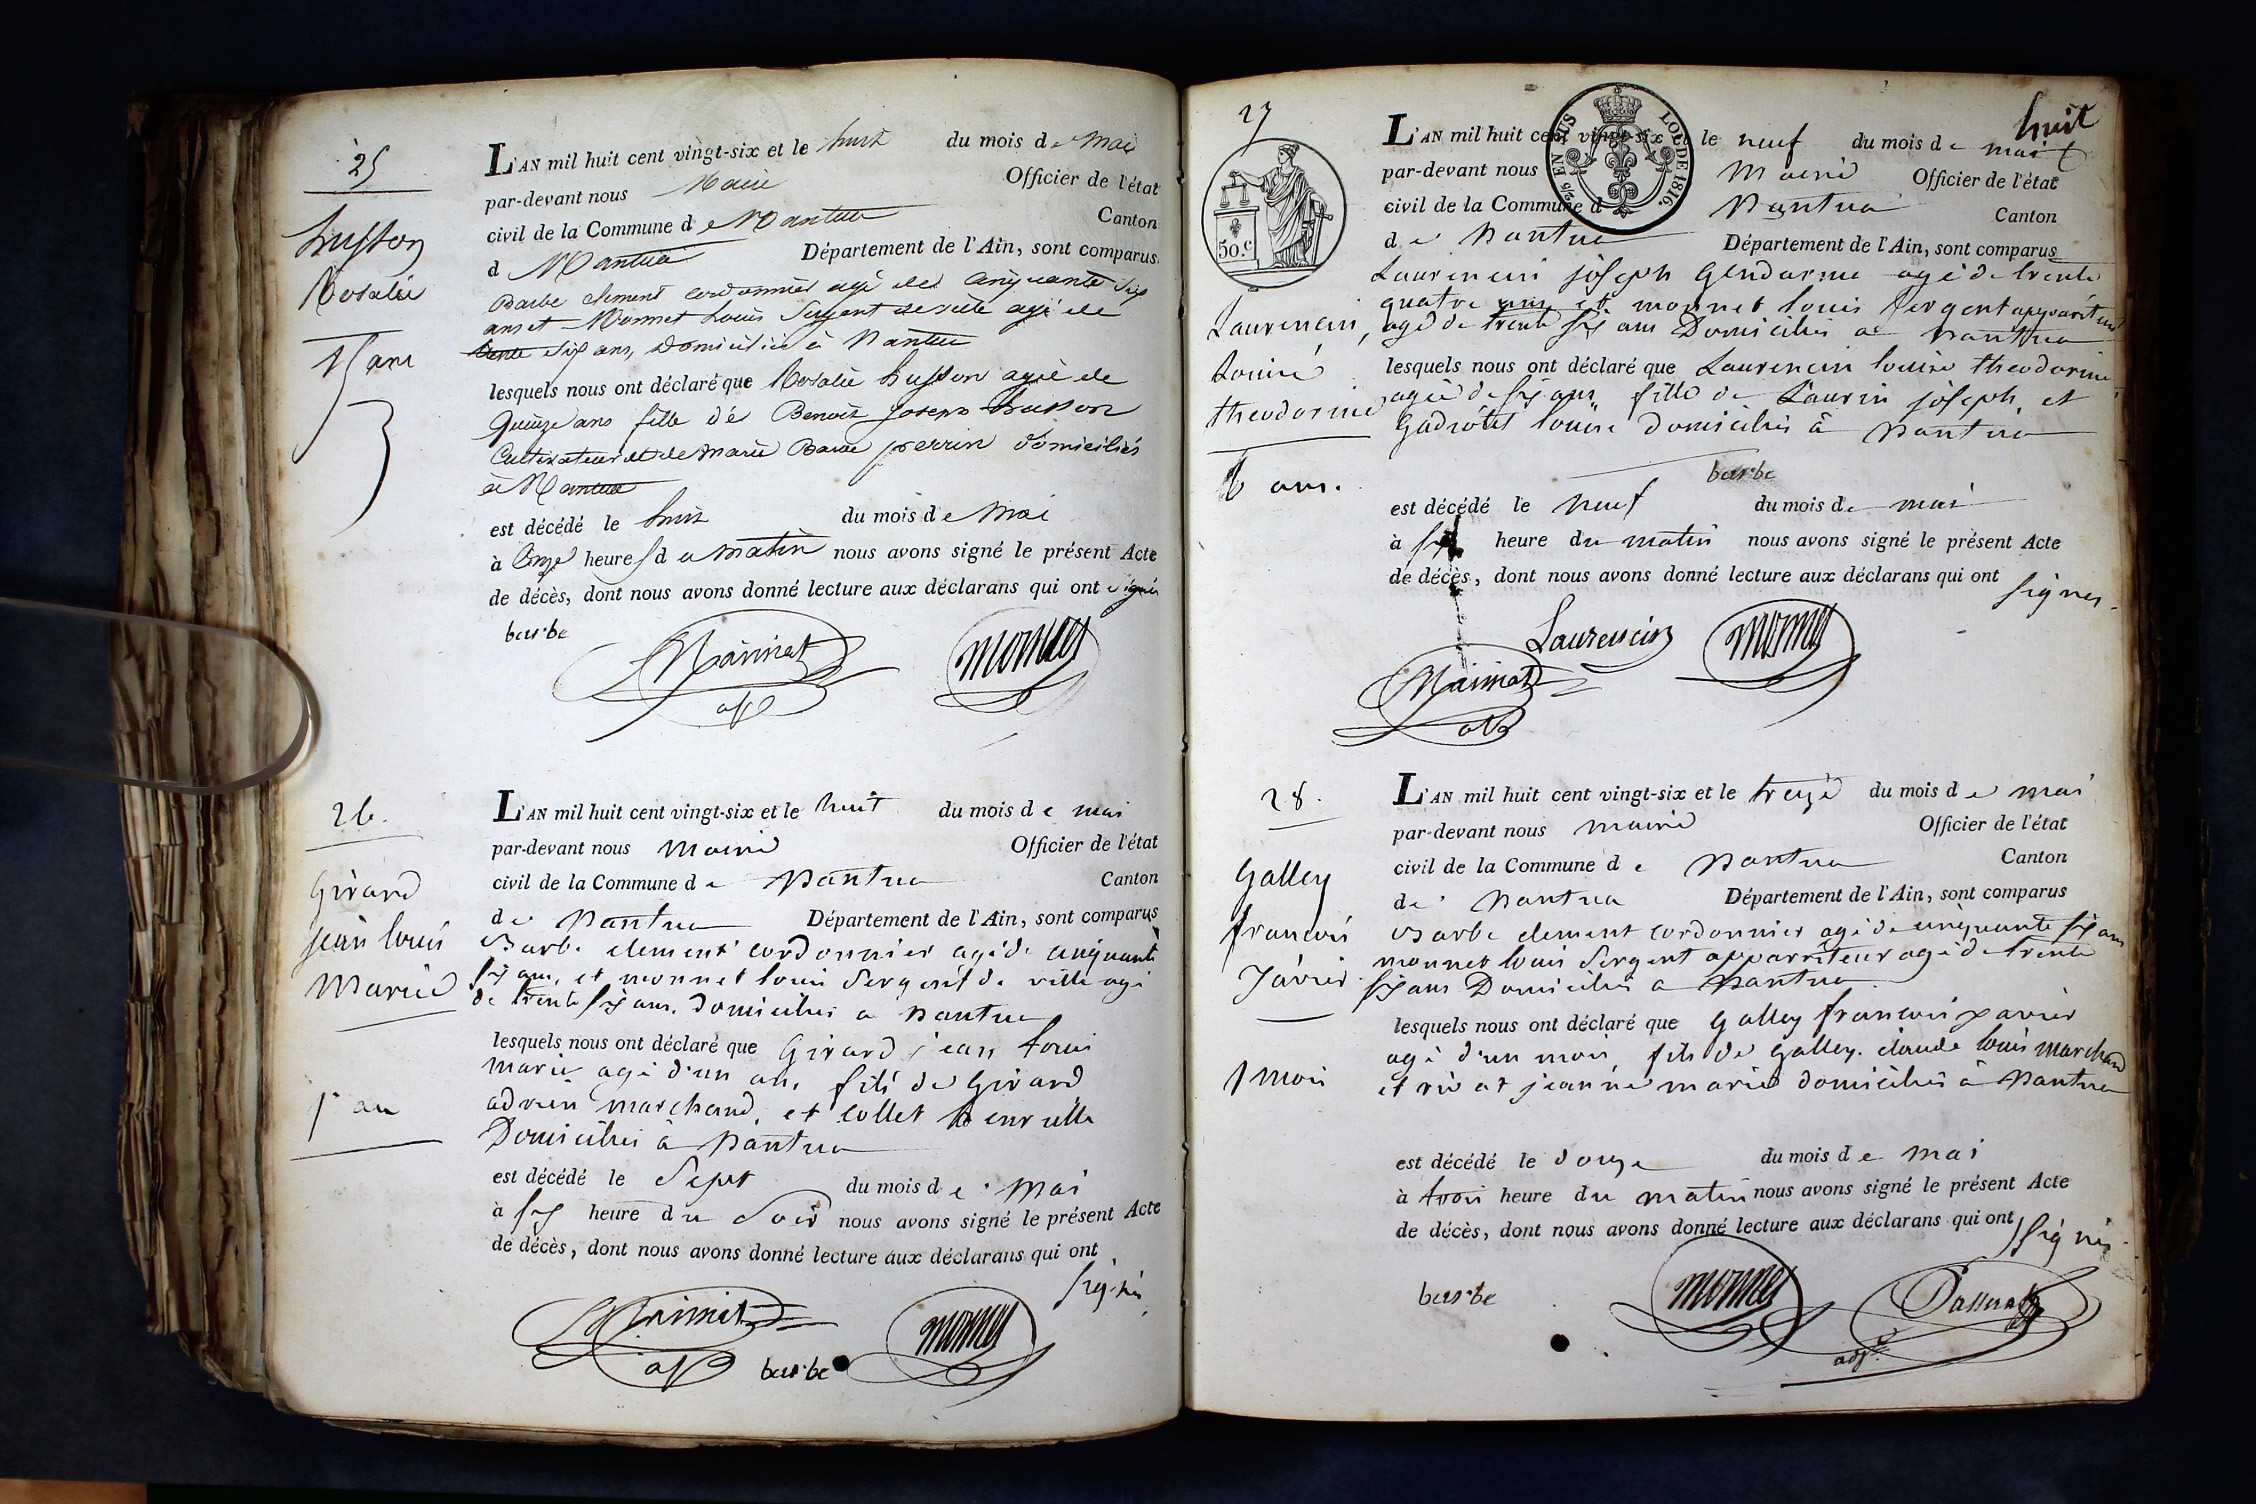 25
husson
Rosalie
15 ans
L'AN mil huit cent vingt-six et le huit du mois de Mai
par-devant nous Maire Officier de l'état
civil de la Commune de Nantua Canton
d Nantua Département de l'Ain, sont comparus
Barbe clement cordonnier agé de cinquante six
ans et Monnet Louis Sergent de ville agé de
trente six ans, Domiciliés à Nantua
lesquels nous ont déclaré que Rosalie husson agée de
Quinze ans fille de Benoit Joseph husson
Cultivateur et de marie Barbe perrin domiciliés
à Nantua
est décédé le huit du mois de Mai
à Onze heures du matin nous avons signé le présent Acte
de décès, dont nous avons donné lecture aux déclarans qui ont signé
barbe
monnet
26.
Girard
jean louis
Marie
1 an
L'AN mil huit cent vingt-six et le huit du mois de mai
par-devant nous Maire Officier de l'état
civil de la Commune de Nantua Canton
de Nantua Département de l'Ain, sont comparus
Barbe clement cordonnier agé de cinquante
six ans, et monnet louis Sergent de ville agé
de trente six ans, domiciliés a nantua
lesquels nous ont déclaré que Girard jean louis
marie agé d'un an, fils de Girard
adrien marchand, et collet
Domiciliés à Nantua
est décédé le Sept du mois de Mai
à six heure du Soir nous avons signé le présent Acte
de décès, dont nous avons donné lecture aux déclarans qui ont
signés
barbe
monnet
huit
27
50.c
EN SUS
LOI DE 1816.
L'AN mil huit cent vingt-six et le neuf du mois de mai
par-devant nous Maire Officier de l'état
civil de la Commune d Nantua Canton
de Nantua Département de l'Ain, sont comparus
Laurencin joseph Gendarme agé de trente
quatre ans et monnet louis Sergent appariteur
agé de trente six ans Domiciliés a nantua
Laurencin,
Louise
theodorine
6 ans.
lesquels nous ont déclaré que Laurencin louise theodorine
agée de six ans, fille de Laurin joseph, et
louise domiciliés à nantua
barbe
est décédé le neuf du mois de mai
à six heure du matin nous avons signé le présent Acte
de décès, dont nous avons donné lecture aux déclarans qui ont
signés.
Laurencin
monnet
28.
Galley
francois
Xavier
1 mois
L'AN mil huit cent vingt-six et le treize du mois de mai
par-devant nous maire Officier de l'état
civil de la Commune de Nantua Canton
de Nantua Département de l'Ain, sont comparus
Barbe clement cordonnier agé de cinquante six ans
monnet louis Sergent appariteur agé de trente
six ans Domiciliés a Nantua
lesquels nous ont déclaré que Galley francois xavier
agé d'un mois, fils de Galley claude louis marchand
et jeanne marie domiciliés à Nantua
est décédé le douze du mois de mai
à trois heure du matin nous avons signé le présent Acte
de décès, dont nous avons donné lecture aux déclarans qui ont signés
barbe
monnet
adj.